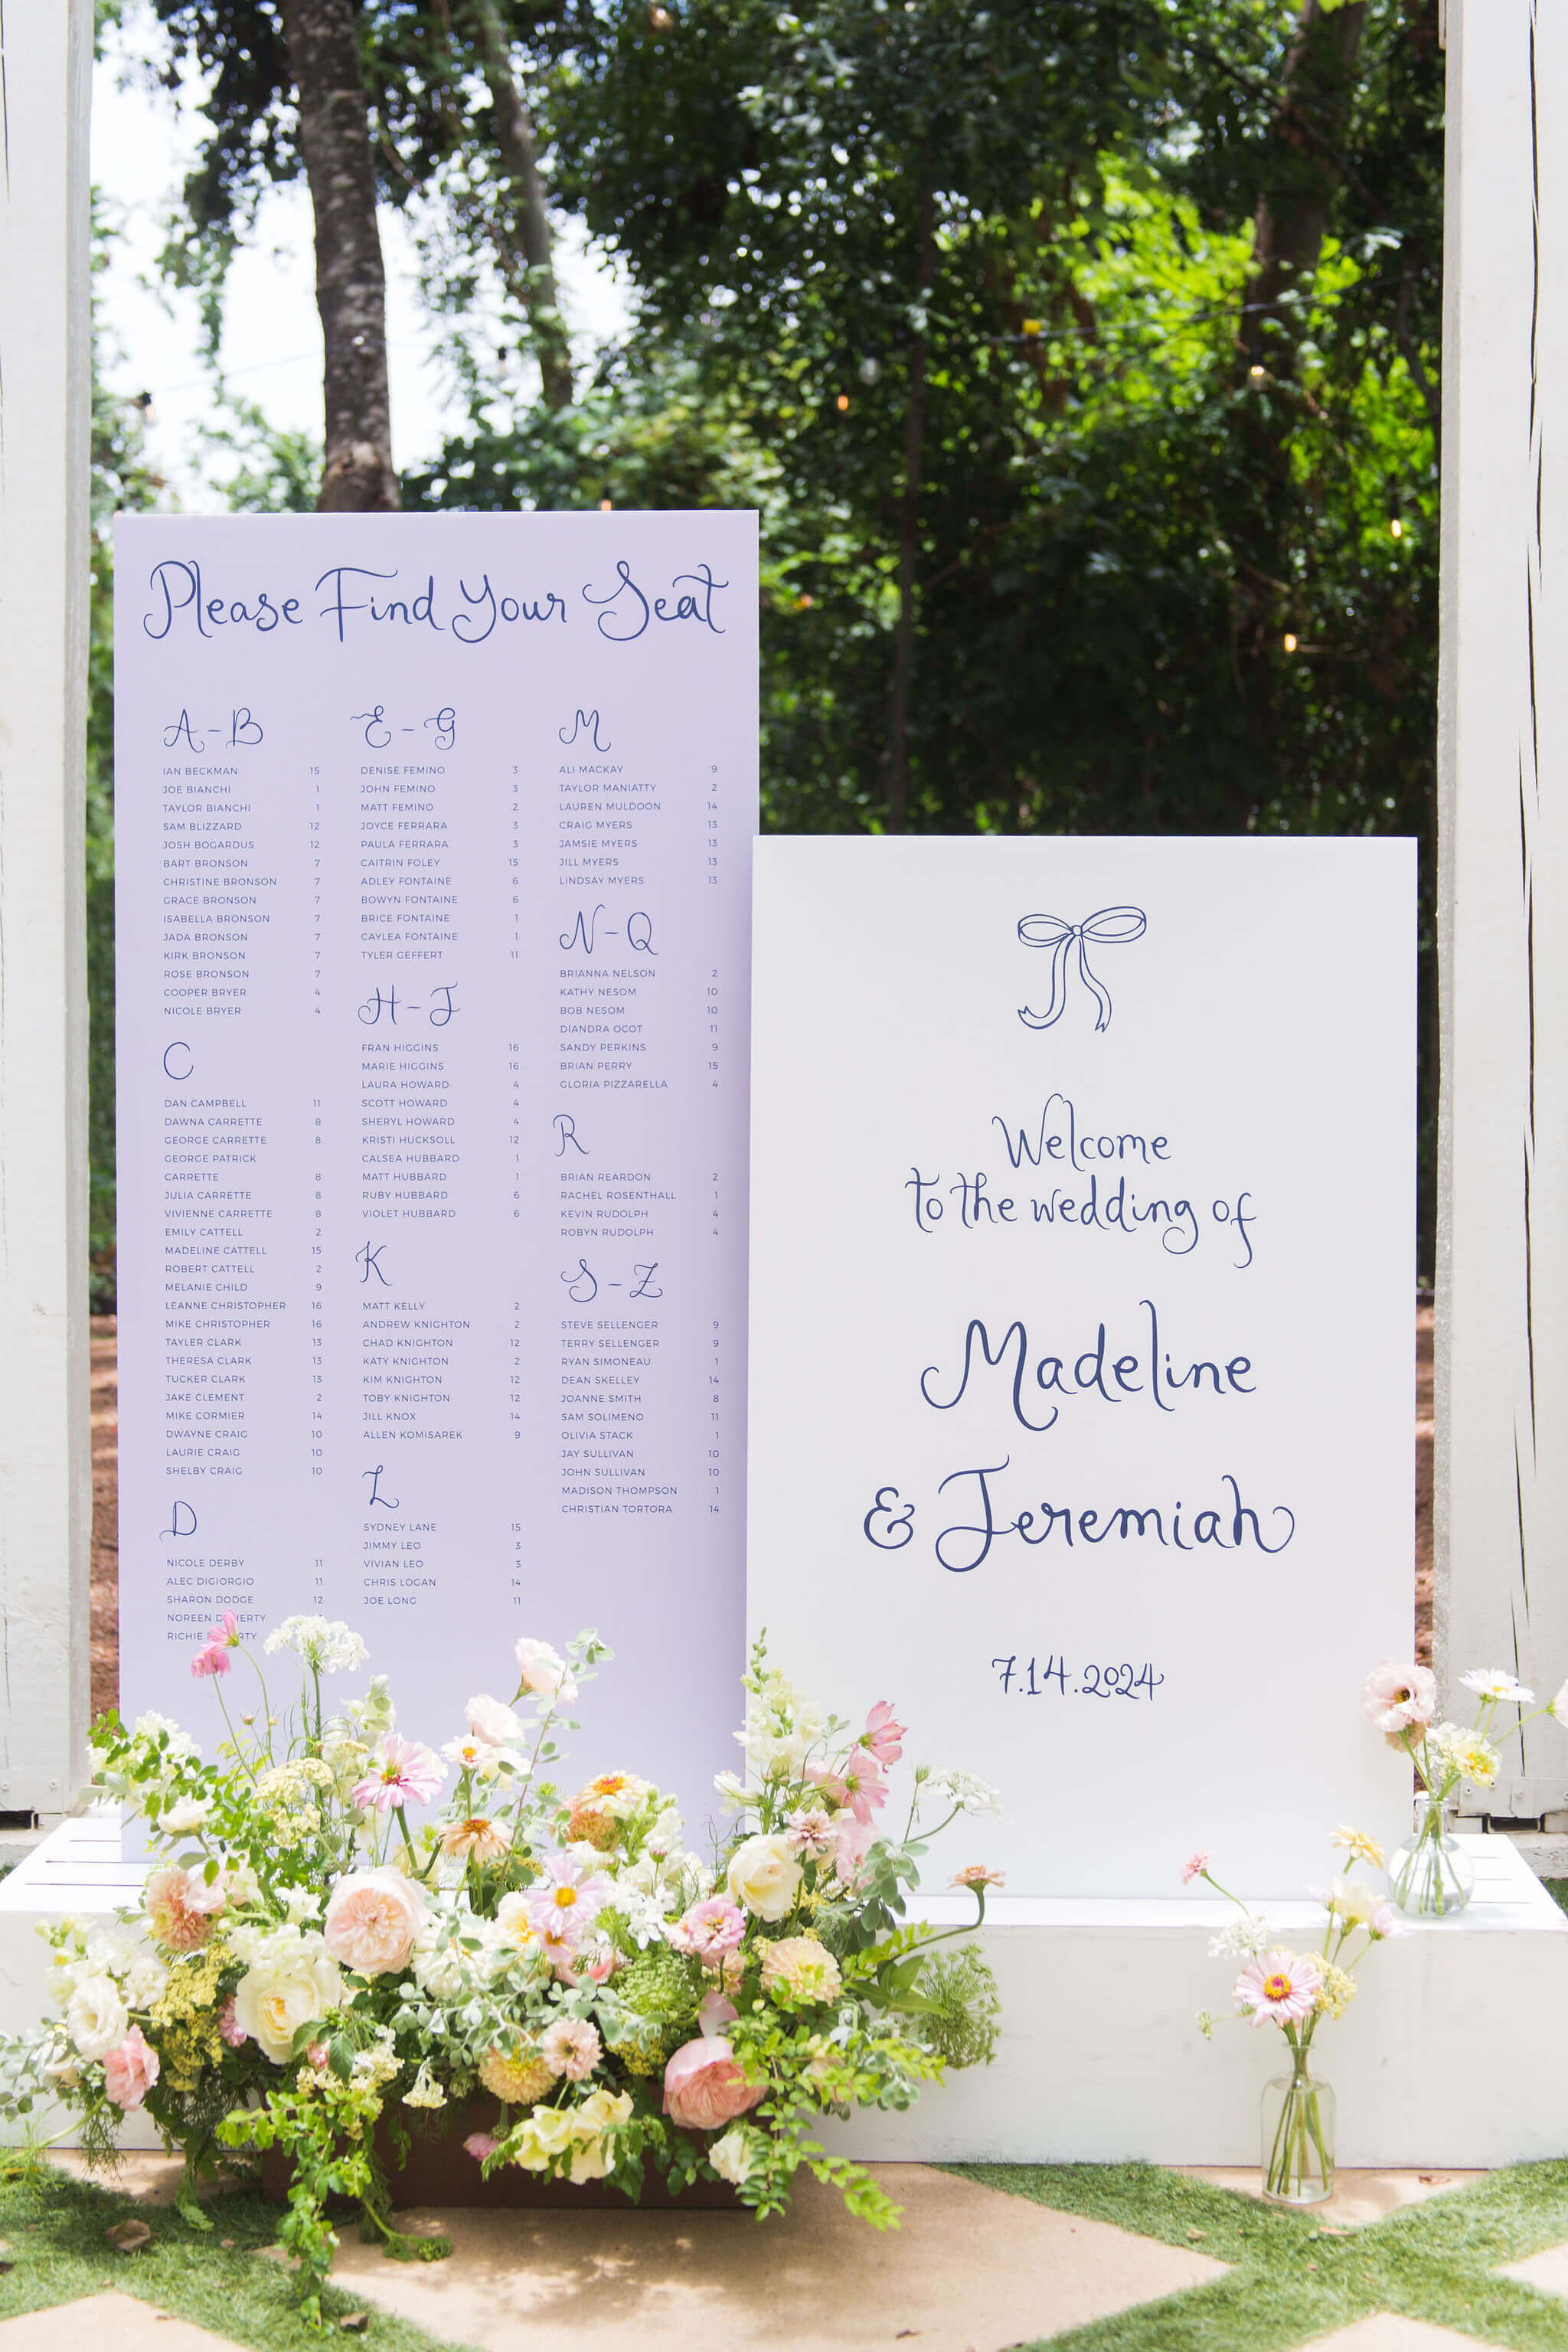 Please Find Your Seat
A-B
IAN BECKMAN 15
JOE BIANCHI 1
TAYLOR BIANCHI 1
SAM BLIZZARD 12
JOSH BOGARDUS 12
BART BRONSON 7
CHRISTINE BRONSON 7
GRACE BRONSON 7
ISABELLA BRONSON 7
JADA BRONSON 7
KIRK BRONSON 7
ROSE BRONSON 7
COOPER BRYER 4
NICOLE BRYER 4
C
DAN CAMPBELL 11
DAWNA CARRETTE 8
GEORGE CARRETTE 8
GEORGE PATRICK
CARRETTE 8
JULIA CARRETTE 8
VIVIENNE CARRETTE 8
EMILY CATTELL 2
MADELINE CATTELL 15
ROBERT CATTELL 2
MELANIE CHILD 9
LEANNE CHRISTOPHER 16
MIKE CHRISTOPHER 16
TAYLER CLARK 13
THERESA CLARK 13
TUCKER CLARK 13
JAKE CLEMENT 2
MIKE CORMIER 14
DWAYNE CRAIG 10
LAURIE CRAIG 10
SHELBY CRAIG 10
D
NICOLE DERBY 11
ALEC DIGIORGIO 11
SHARON DODGE 12
NOREEN
RICHIE
E-G
DENISE FEMINO 3
JOHN FEMINO 3
MATT FEMINO 2
JOYCE FERRARA 3
PAULA FERRARA 3
CAITRIN FOLEY 15
ADLEY FONTAINE 6
BOWYN FONTAINE 6
BRICE FONTAINE 1
CAYLEA FONTAINE 1
TYLER GEFFERT 11
H-J
FRAN HIGGINS 16
MARIE HIGGINS 16
LAURA HOWARD 4
SCOTT HOWARD 4
SHERYL HOWARD 4
KRISTI HUCKSOLL 12
CALSEA HUBBARD 1
MATT HUBBARD 1
RUBY HUBBARD 6
VIOLET HUBBARD 6
K
MATT KELLY 2
ANDREW KNIGHTON 2
CHAD KNIGHTON 12
KATY KNIGHTON 2
KIM KNIGHTON 12
TOBY KNIGHTON 12
JILL KNOX 14
ALLEN KOMISAREK 9
L
SYDNEY LANE 15
JIMMY LEO 3
VIVIAN LEO 3
CHRIS LOGAN 14
JOE LONG 11
M
ALI MACKAY 9
TAYLOR MANIATTY 2
LAUREN MULDOON 14
CRAIG MYERS 13
JAMSIE MYERS 13
JILL MYERS 13
LINDSAY MYERS 13
N-Q
BRIANNA NELSON 2
KATHY NESOM 10
BOB NESOM 10
DIANDRA OCOT 11
SANDY PERKINS 9
BRIAN PERRY 15
GLORIA PIZZARELLA 4
R
BRIAN REARDON 2
RACHEL ROSENTHALL 1
KEVIN RUDOLPH 4
ROBYN RUDOLPH 4
S-Z
STEVE SELLENGER 9
TERRY SELLENGER 9
RYAN SIMONEAU 1
DEAN SKELLEY 14
JOANNE SMITH 8
SAM SOLIMENO 11
OLIVIA STACK 1
JAY SULLIVAN 10
JOHN SULLIVAN 10
MADISON THOMPSON 1
CHRISTIAN TORTORA 14
Welcome
to the wedding of
Madeline
& Jeremiah
7.14.2024